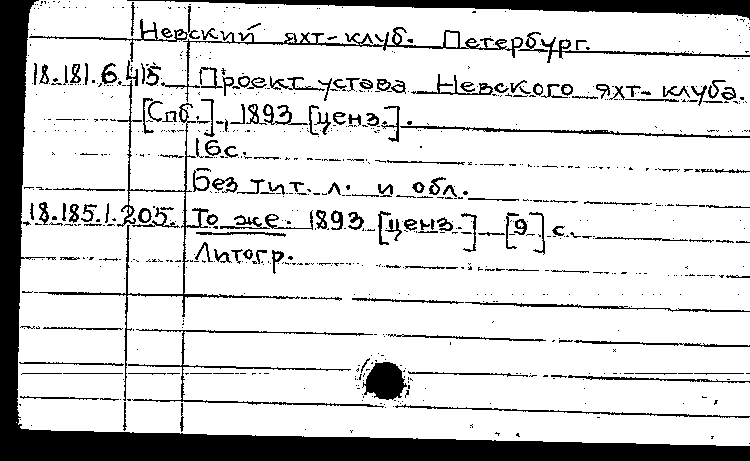 Невский яхт-клуб. Петербург.
18.181.6.415. Проект устава Невского яхт-клуба.
[Спб.], 1893 [ценз.].
16с.
Без тит. л. и обл.
18.185.1.205. То же. 1893 [ценз.] [9] с.
Литогр.